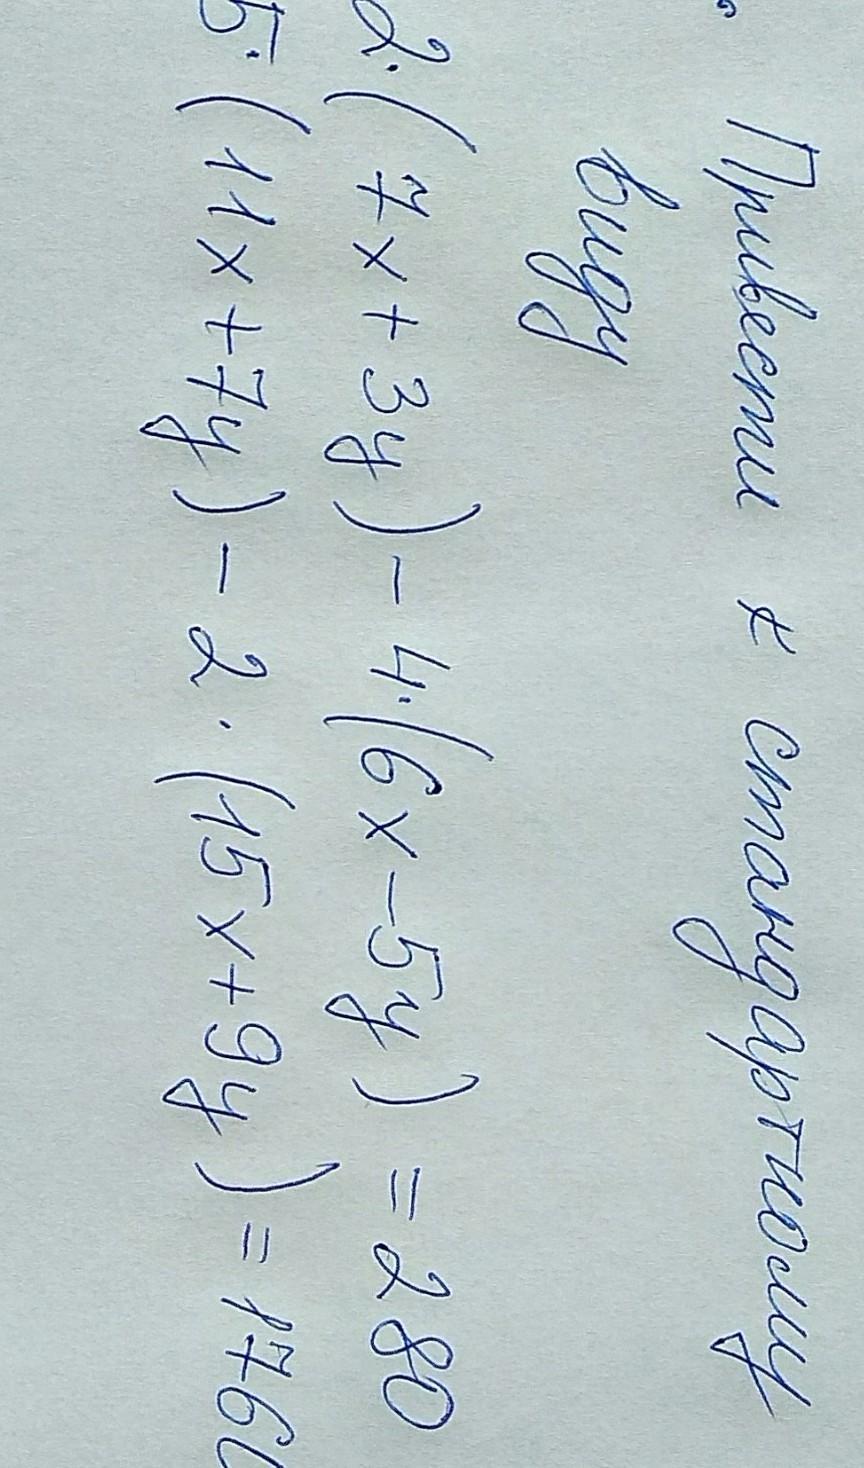 Привести к стандартному
виду
2·(7x+3y)-4·(6x-5y)=280
5·(11x+7y)-2·(15x+9y)=1760